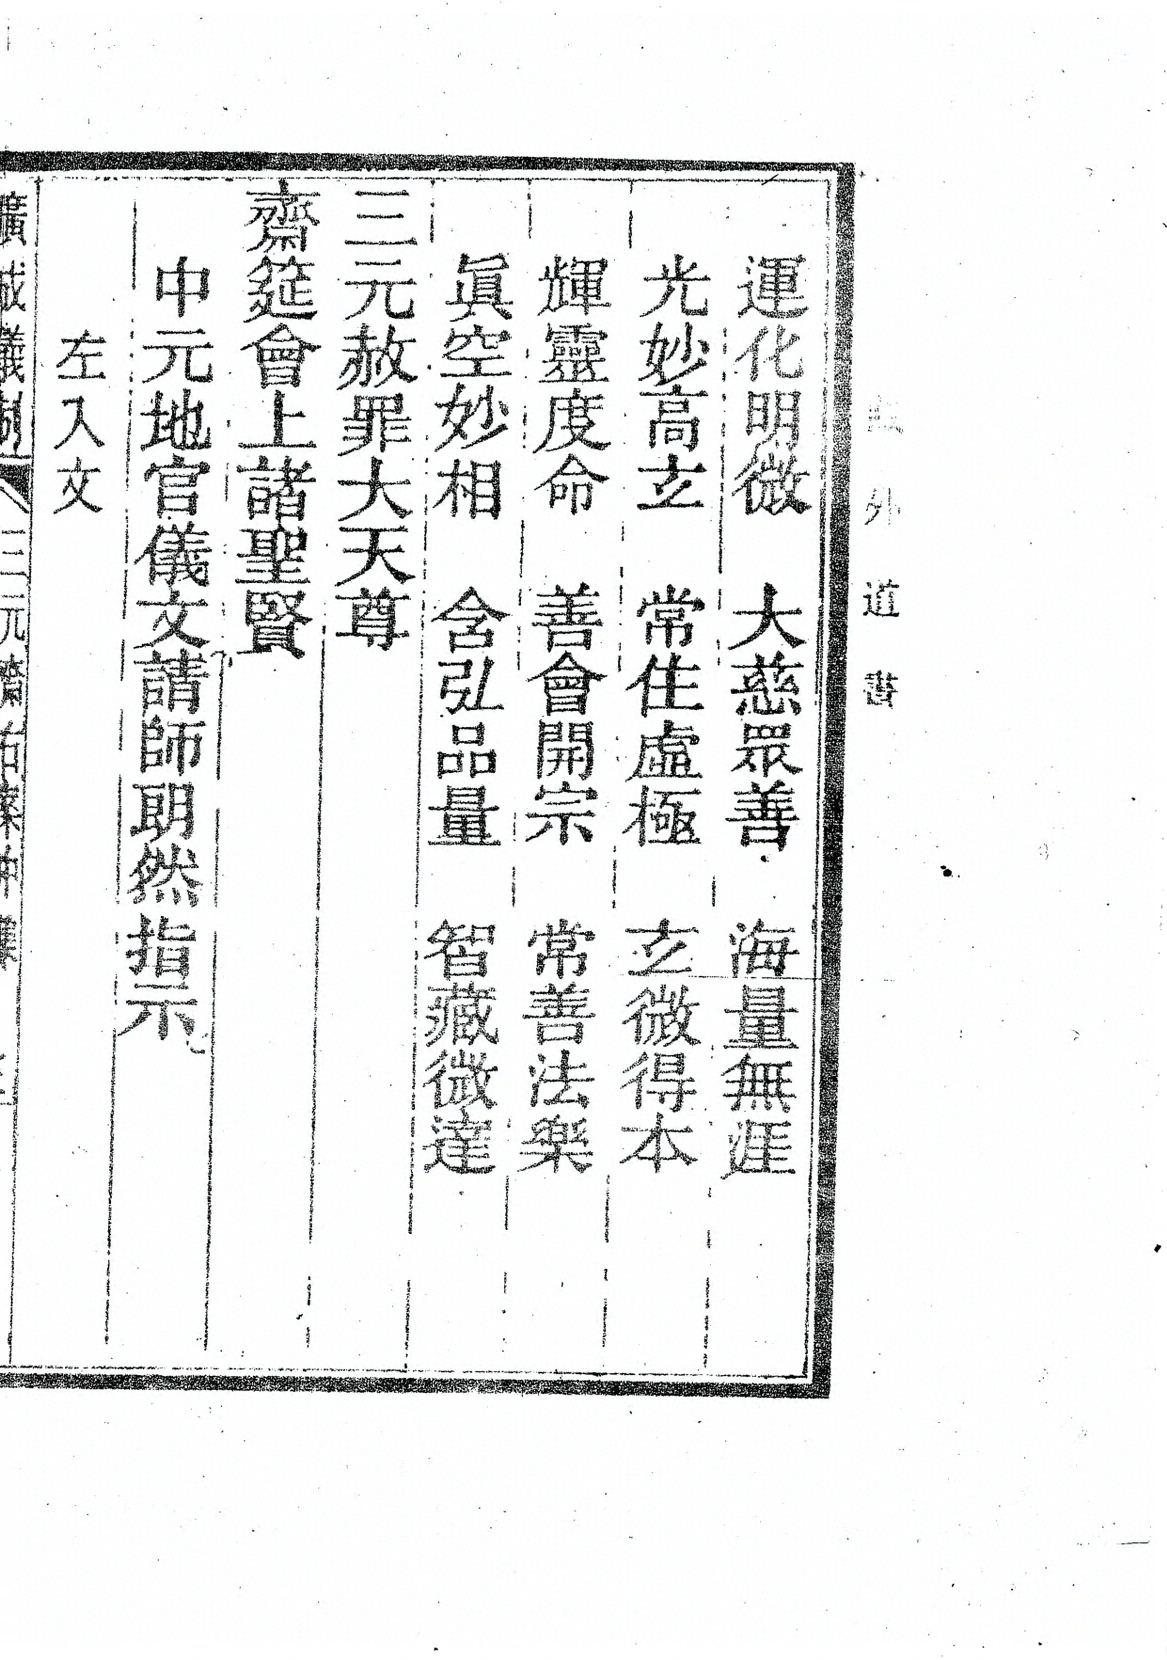 藏外道書
運化明微　大慈眾善　海量無涯
光妙高玄　常住虛極　玄微得本
輝靈度命　善會開宗　常善法樂
眞空妙相　含弘品量　智藏微達
三元赦罪大天尊
齋筵會上諸聖賢
中元地官儀文請師明然指示
左入文
廣成儀制　三元齋左案中集